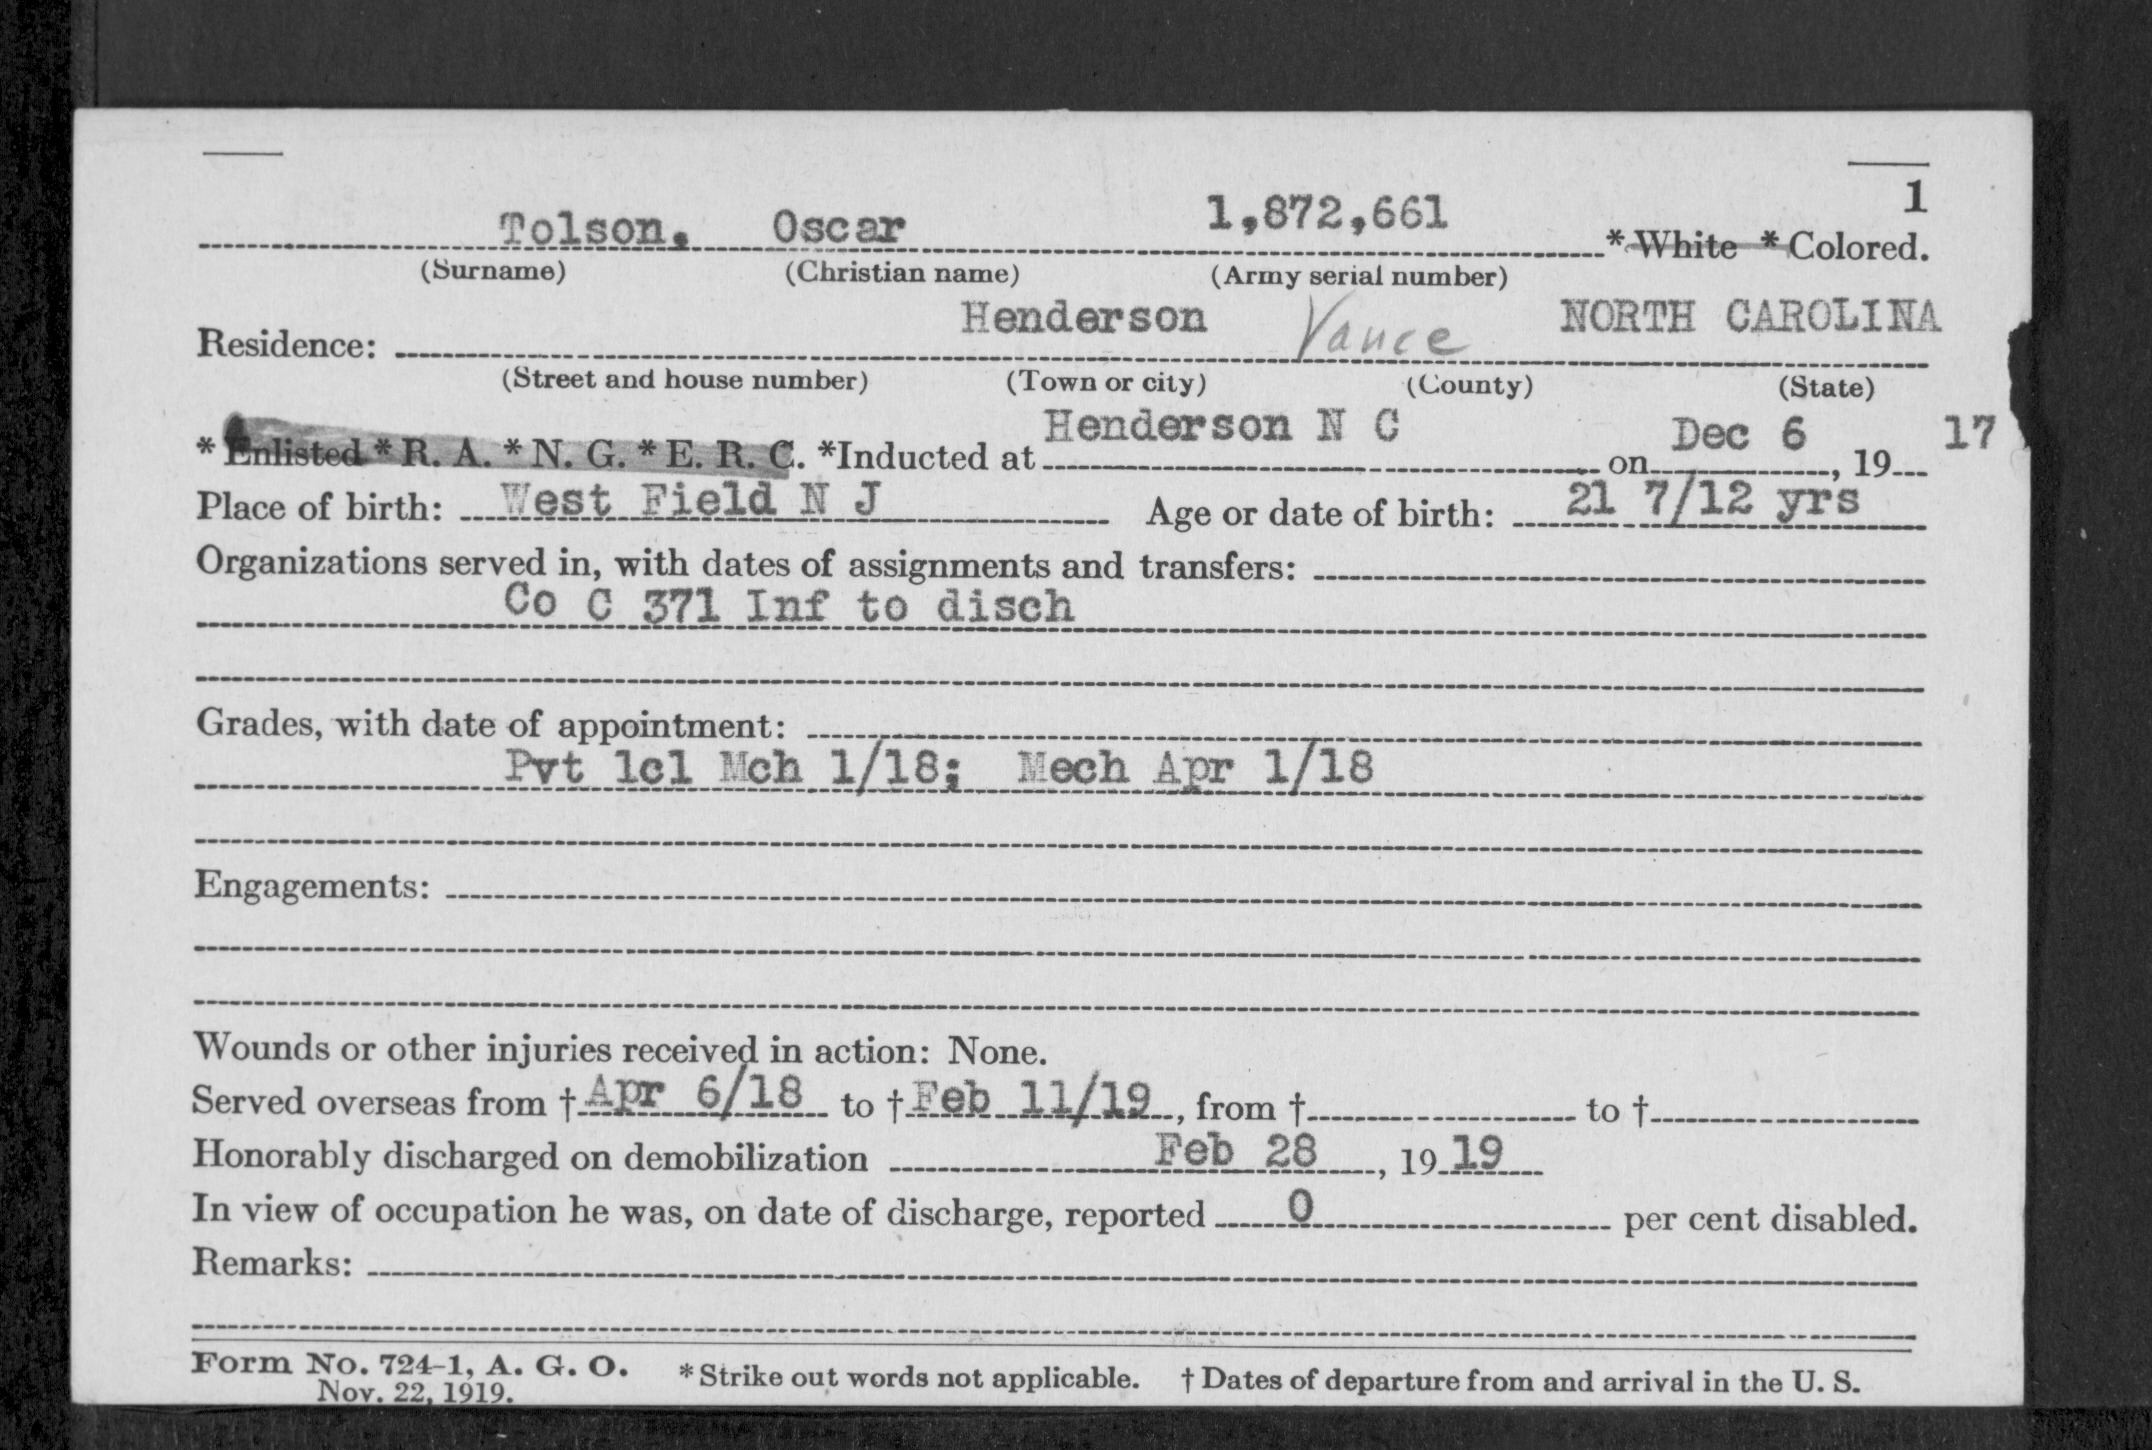 1
Tolson, Oscar 1,872,661 *White *Colored.
(Surname) (Christian name) (Army serial number)
Residence: Henderson Vance NORTH CAROLINA
(Street and house number) (Town or city) (County) (State)
*Enlisted *R. A. *N. G. *E. R. C. *Inducted at Henderson N C on Dec 6, 19 17
Place of birth: West Field N J Age or date of birth: 21 7/12 yrs
Organizations served in, with dates of assignments and transfers:
Co C 371 Inf to disch
Grades, with date of appointment:
Pvt 1cl Mch 1/18; Mech Apr 1/18
Engagements:
Wounds or other injuries received in action: None.
Served overseas from † Apr 6/18 to † Feb 11/19, from † to †
Honorably discharged on demobilization Feb 28, 19 19
In view of occupation he was, on date of discharge, reported 0 per cent disabled.
Remarks:
Form No. 724-1, A. G. O. *Strike out words not applicable. † Dates of departure from and arrival in the U. S.
Nov. 22, 1919.